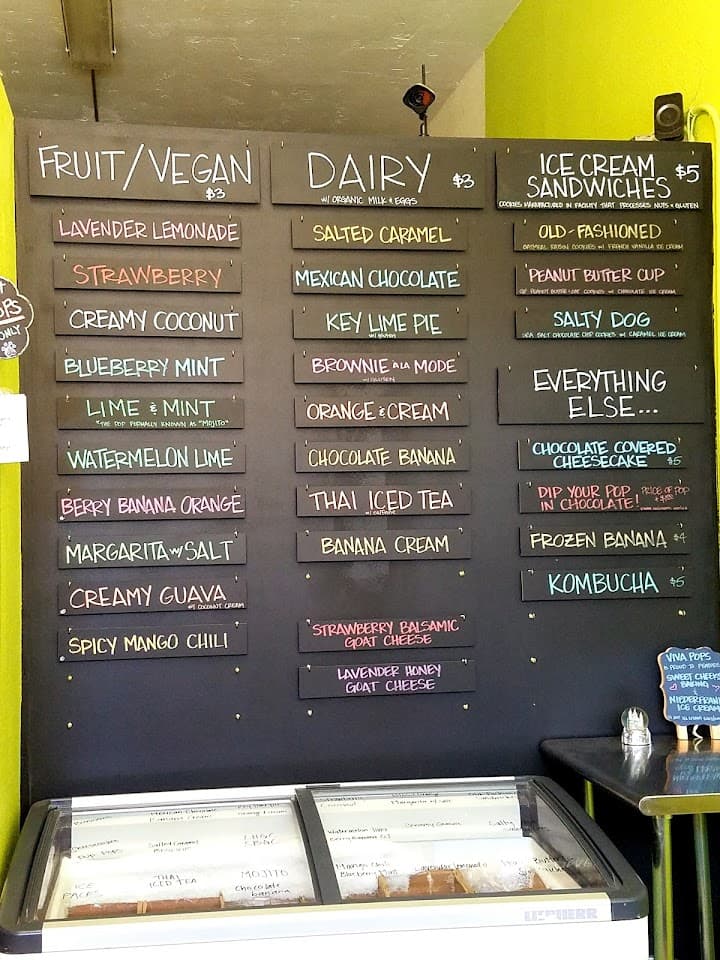 FRUIT/VEGAN
$3
LAVENDER LEMONADE
STRAWBERRY
CREAMY COCONUT
BLUEBERRY MINT
LIME & MINT
"THE POP FORMALLY KNOWN AS "MOJITO"
WATERMELON LIME
BERRY BANANA ORANGE
MARGARITA W/ SALT
CREAMY GUAVA
W/ COCONUT CREAM
SPICY MANGO CHILI
DAIRY $3
W/ ORGANIC MILK & EGGS
SALTED CARAMEL
MEXICAN CHOCOLATE
KEY LIME PIE
W/ GLUTEN
BROWNIE À LA MODE
W/ GLUTEN
ORANGE & CREAM
CHOCOLATE BANANA
THAI ICED TEA
W/ CAFFEINE
BANANA CREAM
STRAWBERRY BALSAMIC
GOAT CHEESE
LAVENDER HONEY
GOAT CHEESE
ICE CREAM
SANDWICHES $5
COOKIES MANUFACTURED IN FACILITY THAT PROCESSES NUTS & GLUTEN
OLD-FASHIONED
OATMEAL RAISIN COOKIES W/ FRENCH VANILLA ICE CREAM
PEANUT BUTTER CUP
PEANUT BUTTER OAT COOKIES W/ CHOCOLATE ICE CREAM
SALTY DOG
SEA SALT CHOCOLATE CHIP COOKIES W/ CARAMEL ICE CREAM
EVERYTHING
ELSE...
CHOCOLATE COVERED
CHEESECAKE $5
DIP YOUR POP PRICE OF POP
IN CHOCOLATE!
FROZEN BANANA $4
KOMBUCHA $5
OPS
ONLY
VIVA POPS
IS PROUD TO
SWEET CHEEKS
BAKING
&
NIEDERFRANK
ICE CREAM
THAI
ICED TEA
MOJITO
Chocolate
banana
ICE
PACKS
Salted Caramel
Mango Chili
Blueberry Mint
LIEBHERR